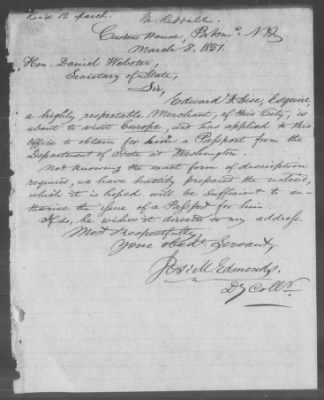 Rec'd 12 March.
Custom House, Ports'mo, N.H.
March 8. 1851.
Hon. Daniel Webster,
Secretary of State,
Sir,
Edward F. Sise, Esquire,
a highly respectable Merchant, of this City, is
about to visit Europe, and has applied to this
office to obtain for him a Passport from the
Department of State at Washington.
Not knowing the exact form of description
required, we have hastily prepared the inclosed,
which it is hoped will be sufficient to au-
thorise the issue of a Passport for him
If so, he wishes it directed to my address.
Most respectfully,
Your Obedt. Servant,
M. Edmonds.
Dy Collr.